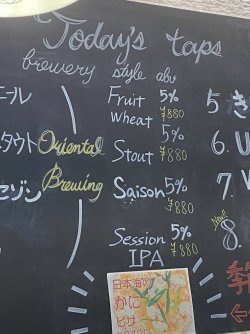 Today's taps
brewery style abv
エール Fruit Wheat 5% ¥880
タウト Oriental Stout 5% ¥880
セゾン Brewing Saison 5% ¥880
Session IPA 5% ¥880
5.
6.
7.
New!
8.
日本海の
かに
ピザ